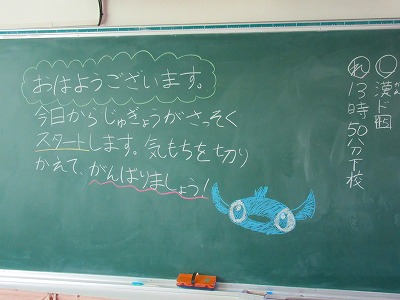 おはようございます。
今日からじゅぎょうがさっそく
スタートします。気もちを切り
かえて、がんばりましょう!
し 漢ド個
れ 13時50分下校